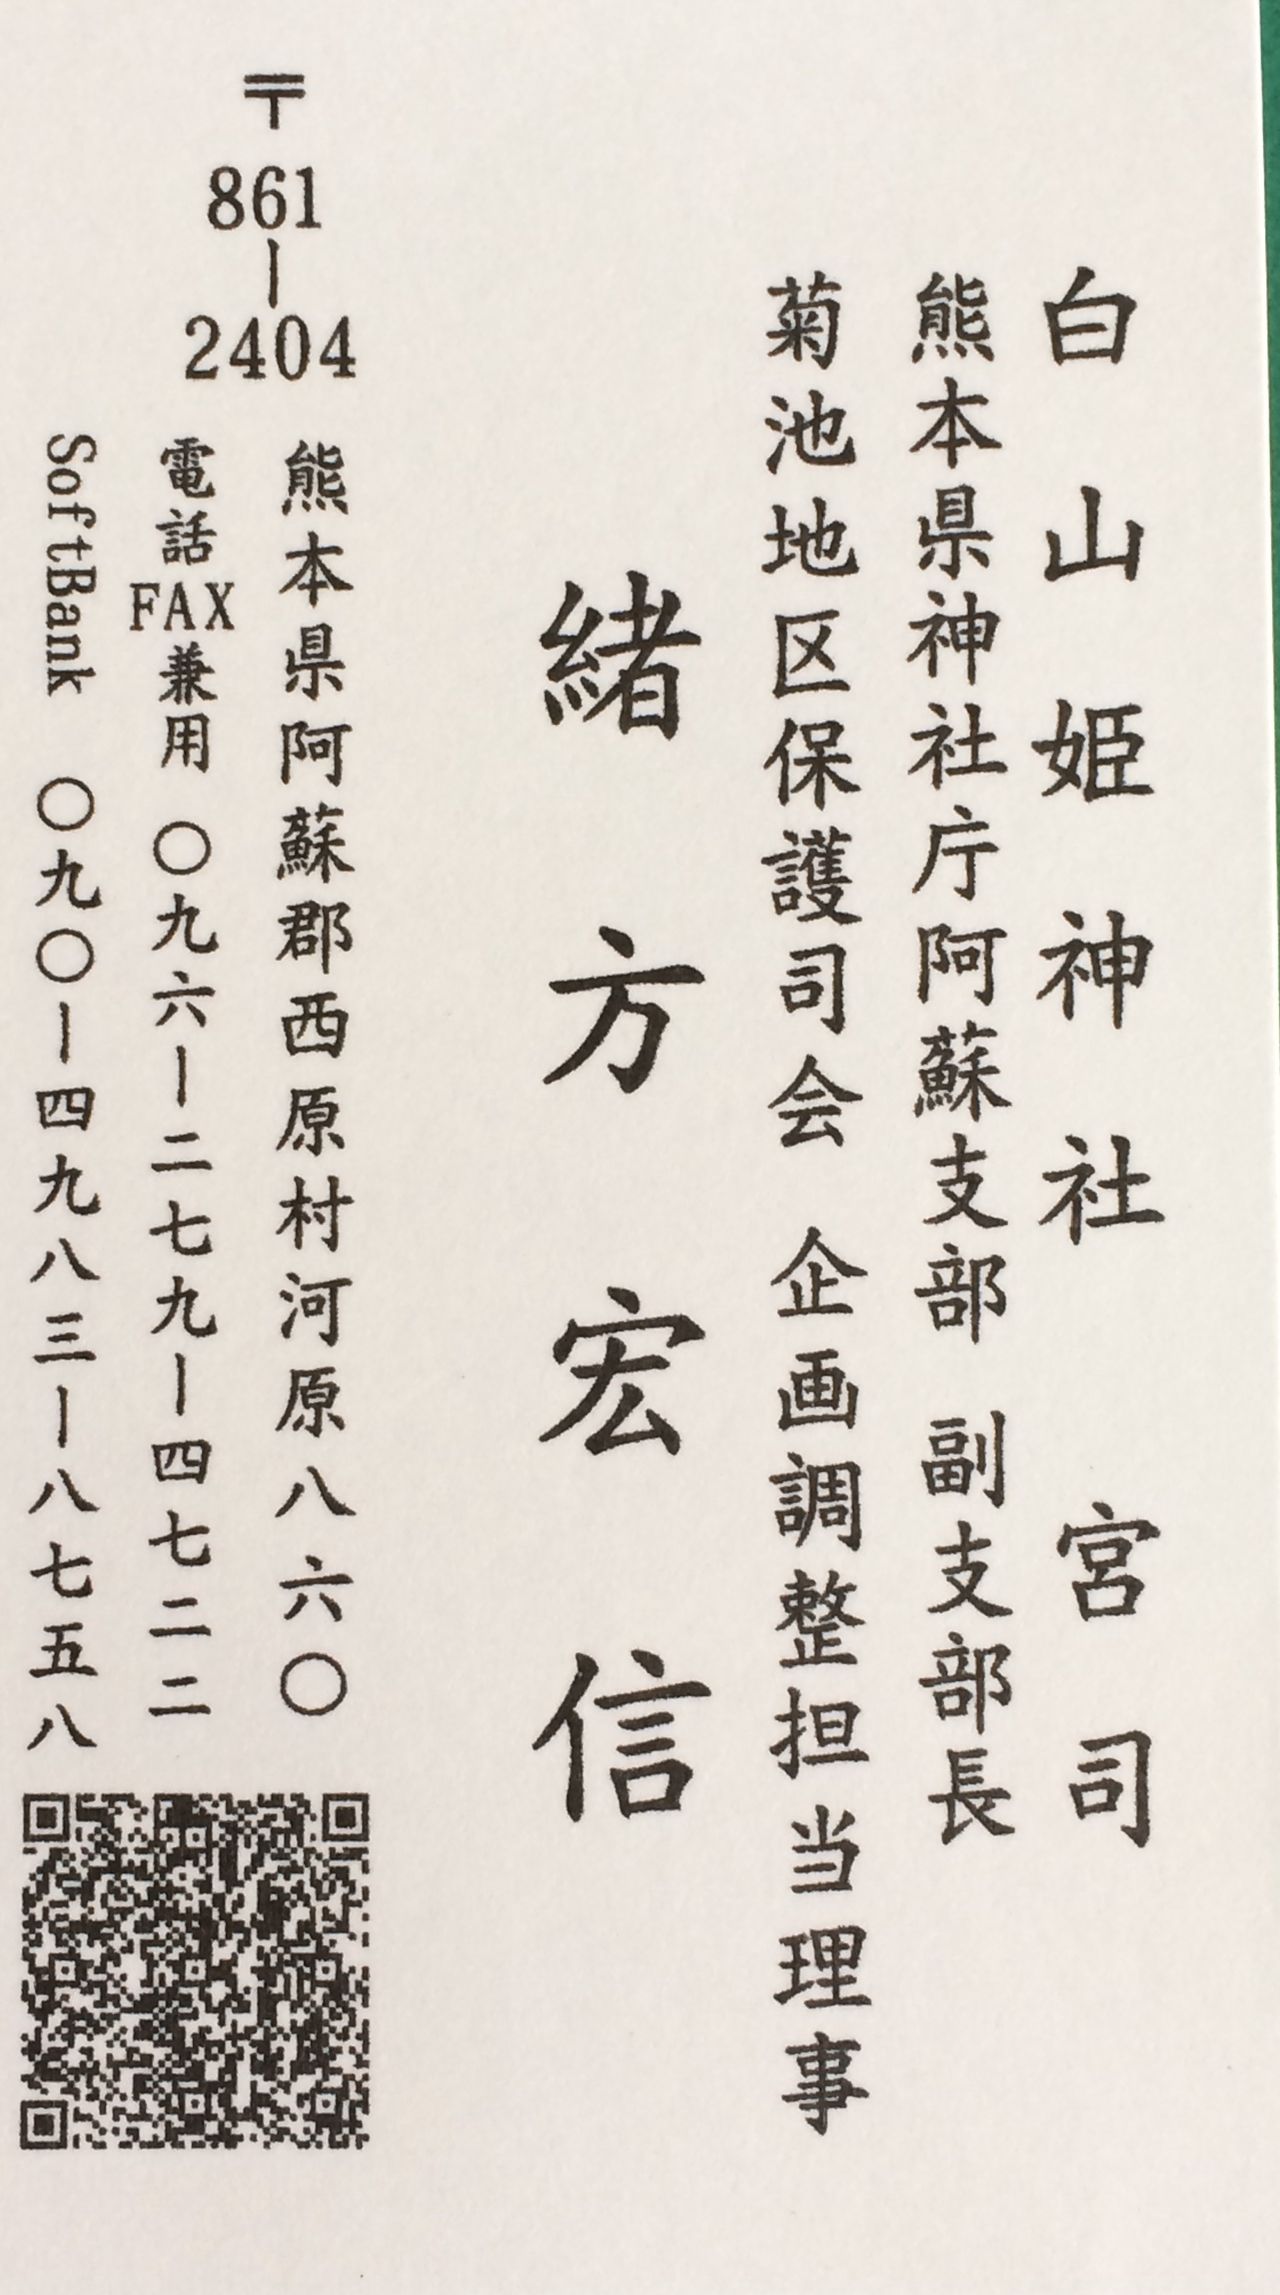 白山姫神社 宮司
熊本県神社庁阿蘇支部 副支部長
菊池地区保護司会 企画調整担当理事
緒方宏信
〒861-2404
熊本県阿蘇郡西原村河原八六〇
電話FAX兼用 〇九六-二七九-四七二二
SoftBank 〇九〇-四九八三-八七五八